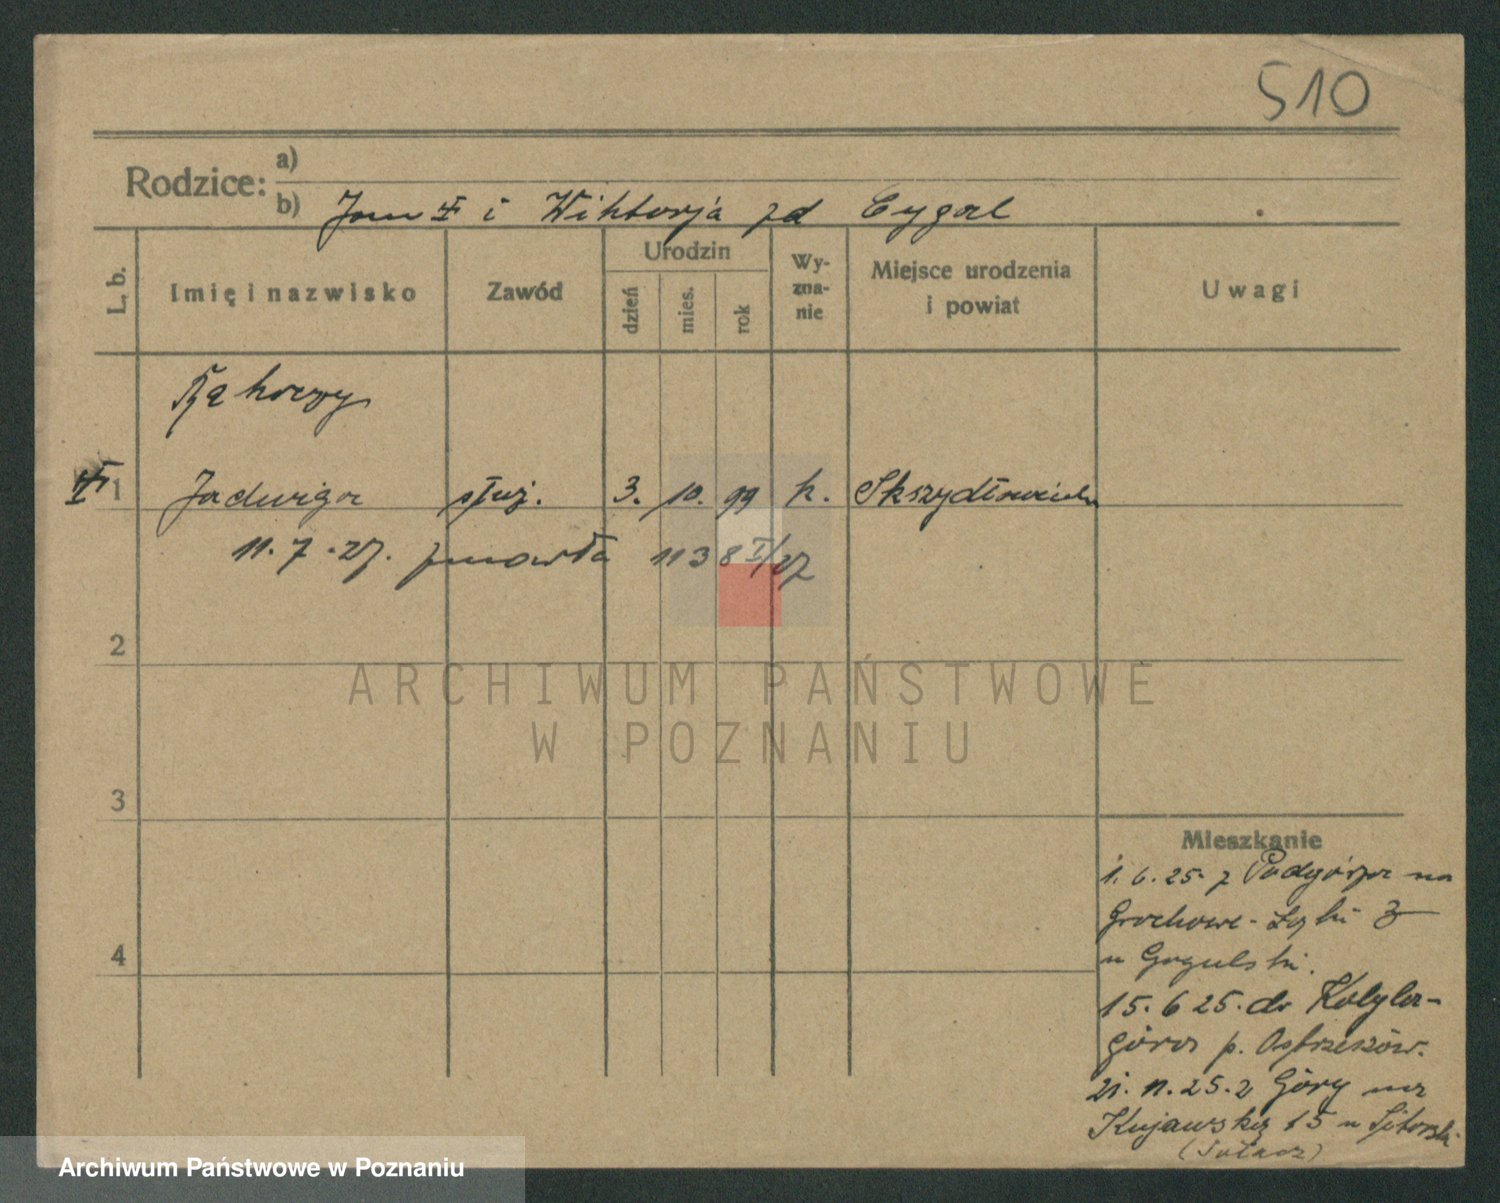 510
Rodzice: a)
b) Jan i Wiktorja zd Cygal
L. b. Imię i nazwisko Zawód Urodzin dzień mies. rok Wy-zna-nie Miejsce urodzenia i powiat Uwagi
1 Jadwiga służ. 3. 10. 99 k.
11.7.27. zmarła 1138 I/27
2
ARCHIWUM PAŃSTWOWE
W POZNANIU
3
Mieszkanie
1.6.25. z Podgórza na
Grochowe-Łąki 3
u Gogulski.
4
15.6 25. do Kobyla-
góra p. Ostrzeszów.
21.11.25. z Góry na
Kujawską 15 u
(Sołacz)
Archiwum Państwowe w Poznaniu